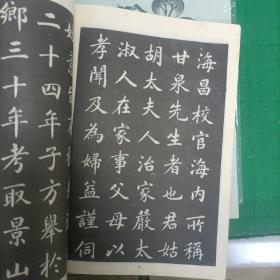 海昌校官海内所稱
甘泉先生者也君姑
胡太夫人治家嚴太
淑人在家事父母以
孝聞及為婦益謹伺
二十四年子方舉於
鄉三十年考取景山